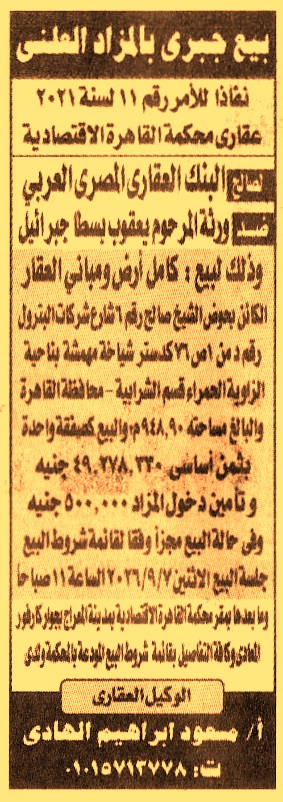 بيع جبرى بالمزاد العلنى
نفاذا للأمر رقم ١١ لسنة ٢٠٢١
عقارى محكمة القاهرة الاقتصادية
لصالح البنك العقارى المصرى العربي
ضد ورثة المرحوم يعقوب بسطا جبرائيل
وذلك لبيع : كامل أرض ومباني العقار
الكائن بحوض الشيخ صالح رقم ٦ شارع شركات البترول
رقم د من ١ ص ٧٦ كدستر شياخة مهمشة بناحية
الزاوية الحمراء قسم الشرابية - محافظة القاهرة
والبالغ مساحته ٩٤٨,٩٠م٢ والبيع كصفقة واحدة
بثمن أساسى ٤٩,٢٧٨,٣٣٠ جنيه
وتأمين دخول المزاد ٥٠٠,٠٠٠ جنيه
وفى حالة البيع مجزأ وفقا لقائمة شروط البيع
جلسة البيع الاثنين ٢٠٢٦/٩/٧ الساعة ١١ صباحا
وما بعدها بمقر محكمة القاهرة الاقتصادية بمدينة المعراج بجوار كارفور
المعادى وكافة التفاصيل بقائمة شروط البيع المودعة بالمحكمة ولدى
الوكيل العقارى
أ/ مسعود ابراهيم الهادى
ت: ٠١٠١٥٧١٣٧٧٨